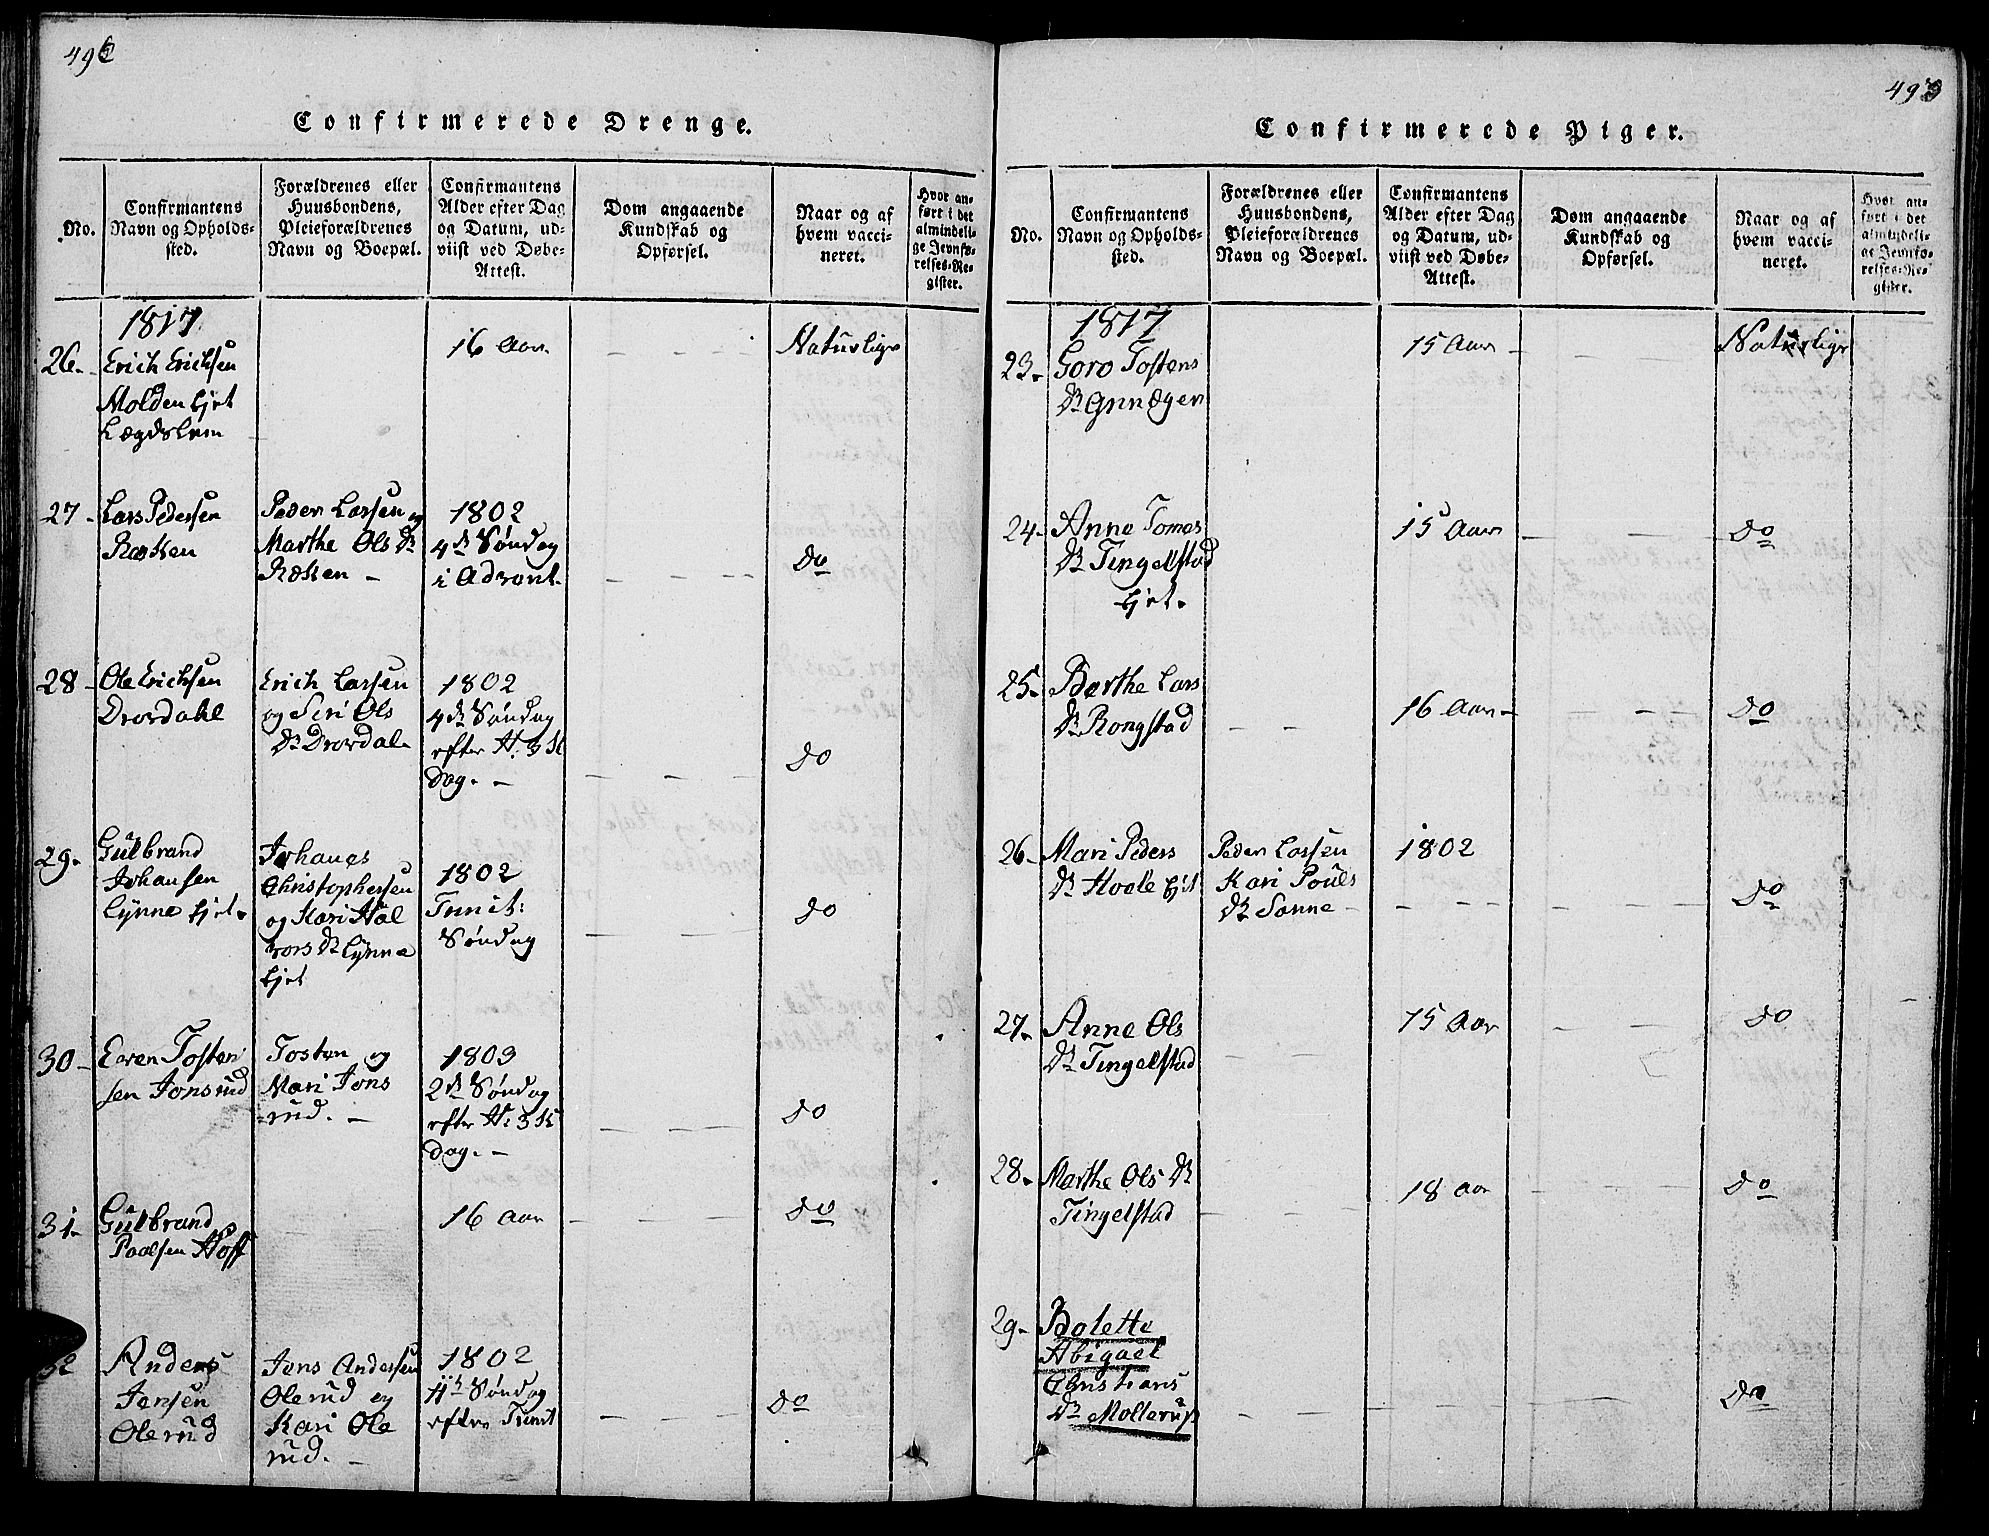 Confirmerede Drenge.
No.
Confirmantens
Navn og Opholds-
sted.
Forældrenes eller
Huusbondens,
Pleieforældrenes
Navn og Boepæl.
Confirmantens
Alder efter Dag
og Datum, ud-
viist ved Døbe-
Attest.
Dom angaaende
Kundskab og
Opførsel.
Naar og af
hvem vacci-
neret.
Hvor an-
ført i det
almindeli-
ge Jevnfø-
relses-Re-
gister.
1817
26. Erich Erichsen
Molden Ejet
Lægdslem
16 Aar
Naturlige
27 Lars Pedersen
Peder Larsen og
Marthe Ols Dr
1802
4de Søndag
i Advent
do
28 Ole Erichsen
Drovdahl
Erich Larsen
og Siri Ols
Dr Drovdal
1802
4de Søndag
efter H. 3 K
Dag.
do
29. Gulbrand
Johansen
Lynne Ejet
Johanes
Christophersen
og Kari Hal
vors Dr Lynne
Ejet
1802
Trinit:
Søndag
do
30 Even Tosten
sen Jonsrud
Tosten og
Mari Jons
rud.
1803
2de Søndag
efter H. 3 K
Dag.
do
31. Gulbrand
Poolsen Hoff
16 Aar
do
32 Anders
Jensen
Olerud
Jens Andersen
Olerud og
Kari Ole
rud.
1802
Søndag
efter Trinit
do
493
Confirmerede Piger.
No.
Confirmantens
Navn og Opholds-
sted.
Forældrenes eller
Huusbondens,
Pleieforældrenes
Navn og Boepæl.
Confirmantens
Alder efter Dag
og Datum, ud-
viist ved Døbe-
Attest.
Dom angaaende
Kundskab og
Opførsel.
Naar og af
hvem vacci-
neret.
Hvor an-
ført i det
almindeli-
ge Jevnfø-
relses-Re-
gister.
1817
23. Goro Tostens
Dr
15 Aar
Naturlige
24. Anne Tomes
Dr Tingelstad
Ejet.
15 Aar
do
25. Berthe Lars
Dr Rongstad
16 Aar
do
26 Mari Peders
Dr Hvale Ejet
Peder Larsen
Kari Pouls
Dr Sonne
1802
do
27. Anne Ols
Dr Tingelstad
15 Aar
do
28. Marthe Ols Dr
Tingelstad
18 Aar
do
29. Bolette
Abigael
Christians
Dr Mollerup
do